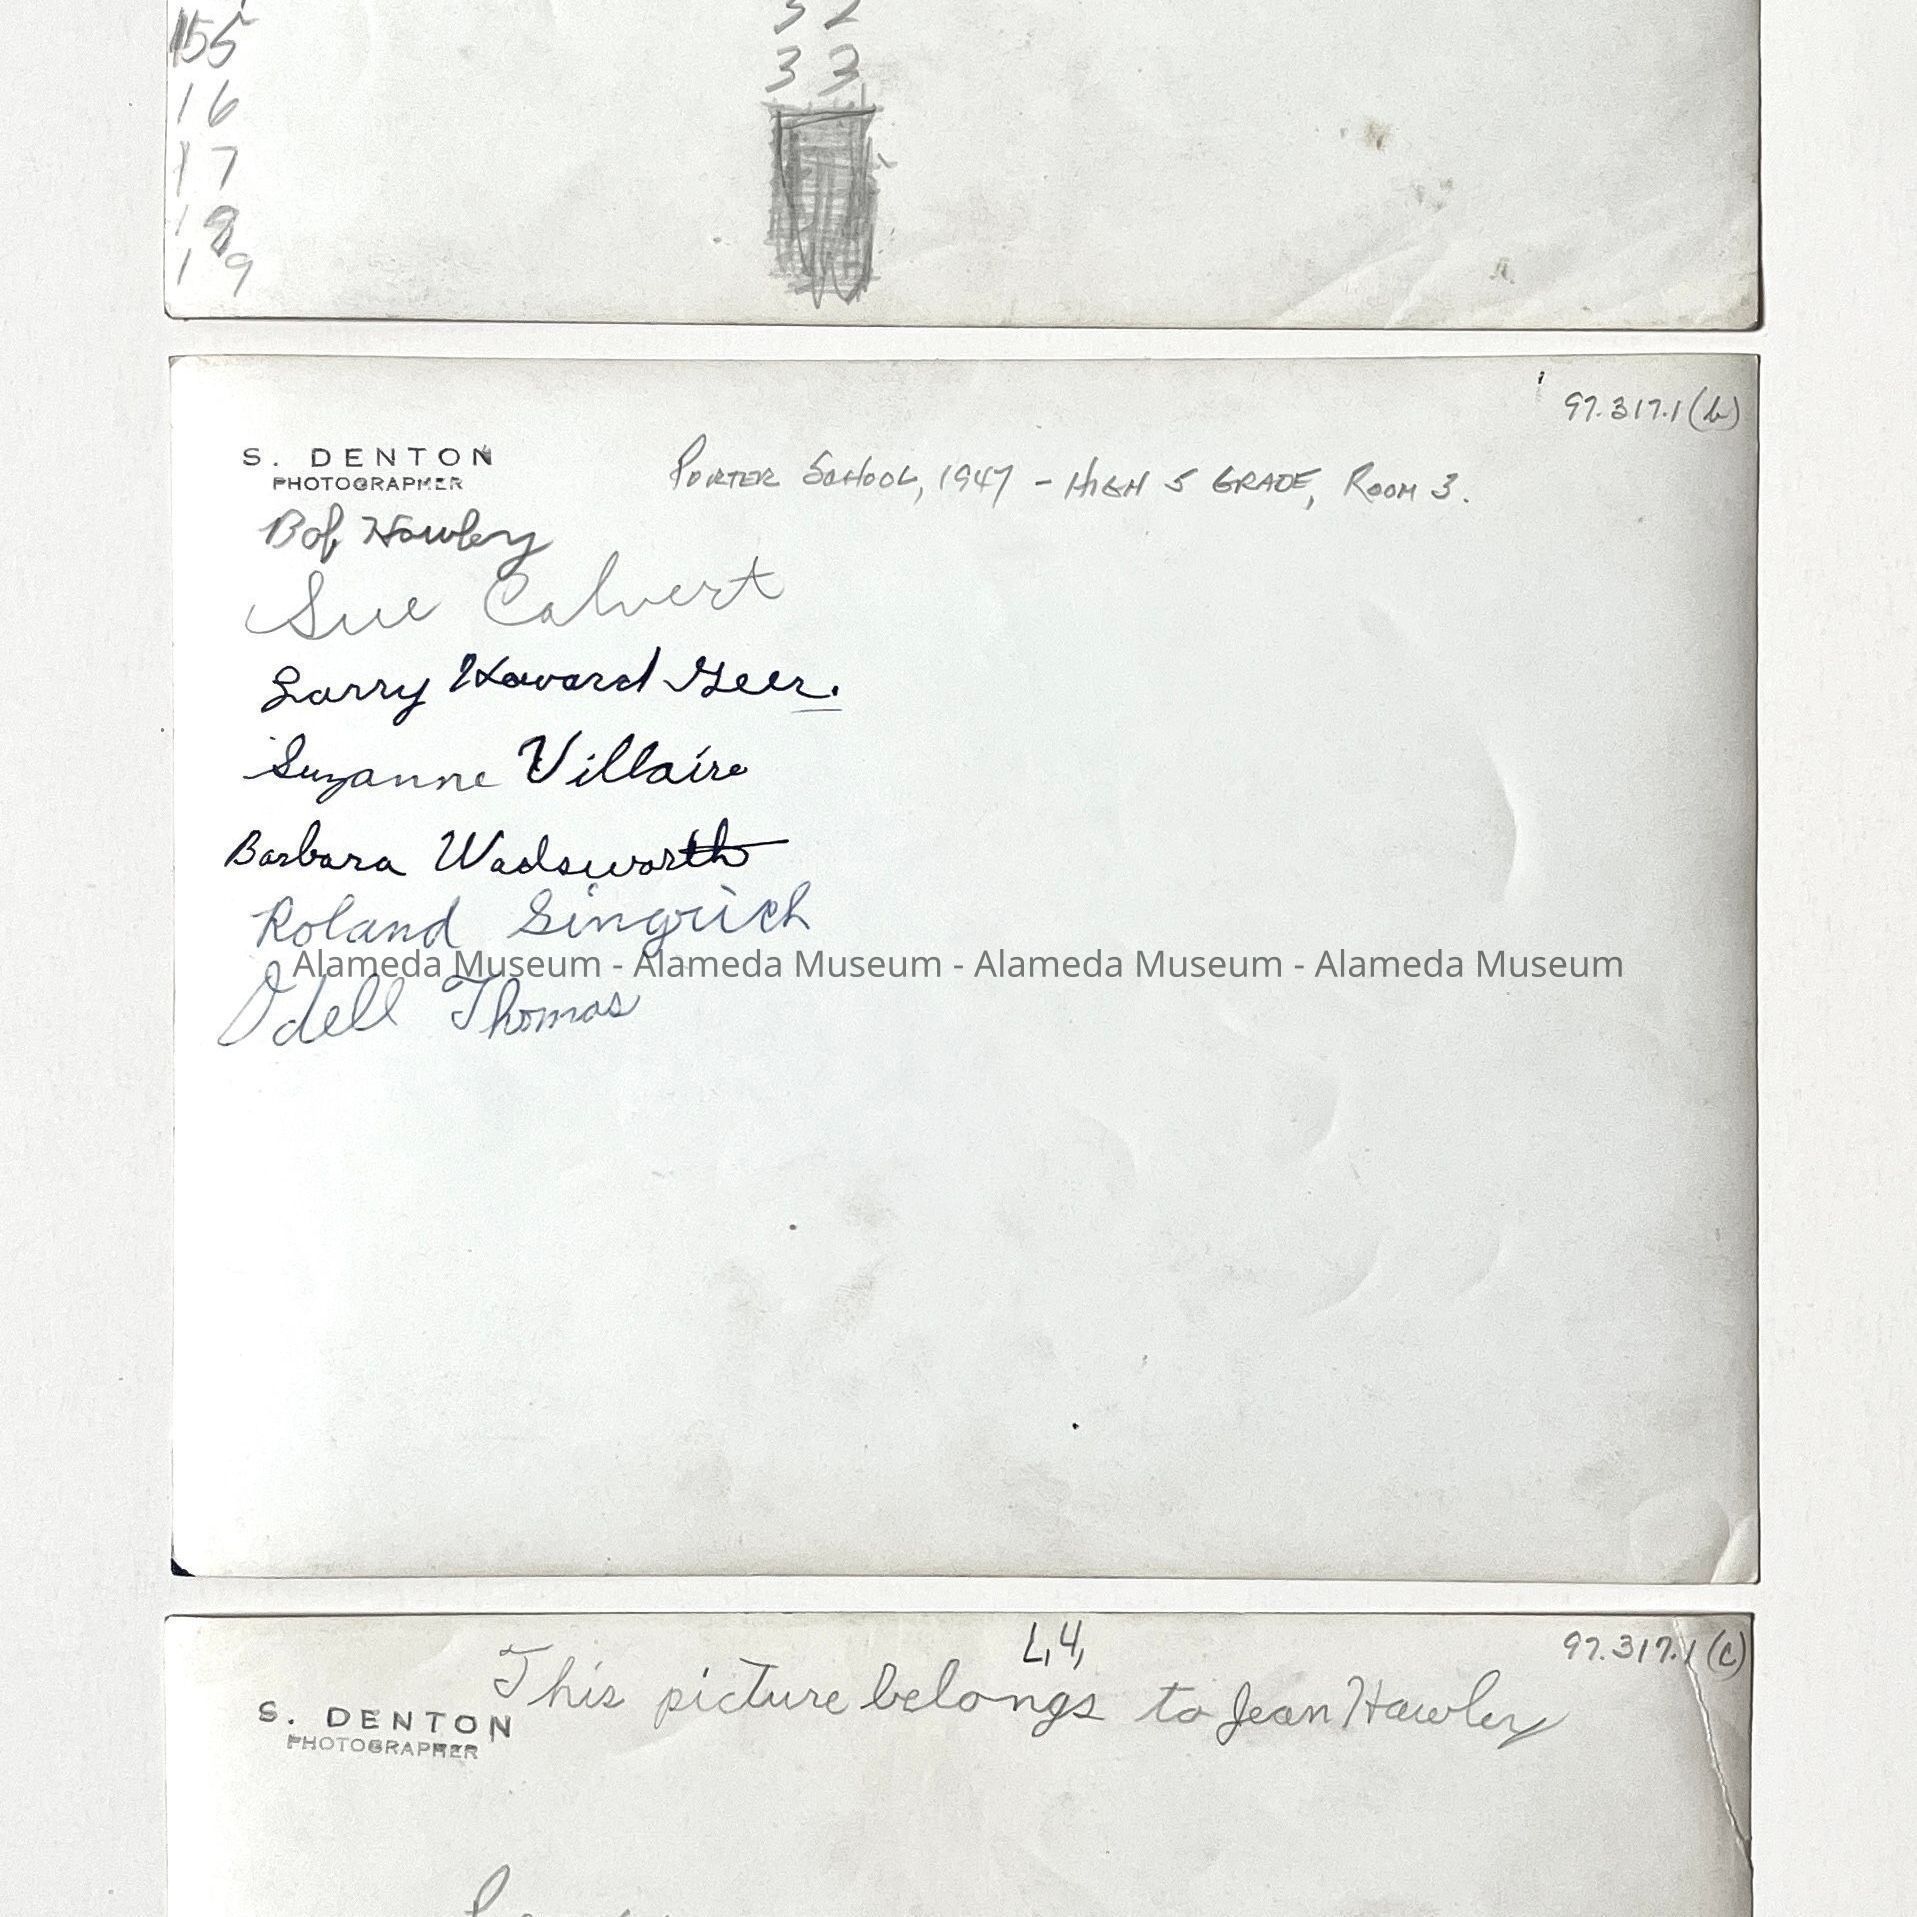 155
3 2
3 3
16
17
18
19
97.317.1(b)
S. DENTON
PHOTOGRAPHER
PORTER SCHOOL, 1947 - HIGH 5 GRADE, ROOM 3.
Bob Hawley
Sue Calvert
Larry Howard Geer.
Suzanne Villaire
Barbara Wadsworth
Roland Gingrich
Alameda Museum - Alameda Museum - Alameda Museum - Alameda Museum
Odell Thomas
L,4,
97.317.1(c)
This picture belongs to Jean Hawley
S. DENTON
PHOTOGRAPHER